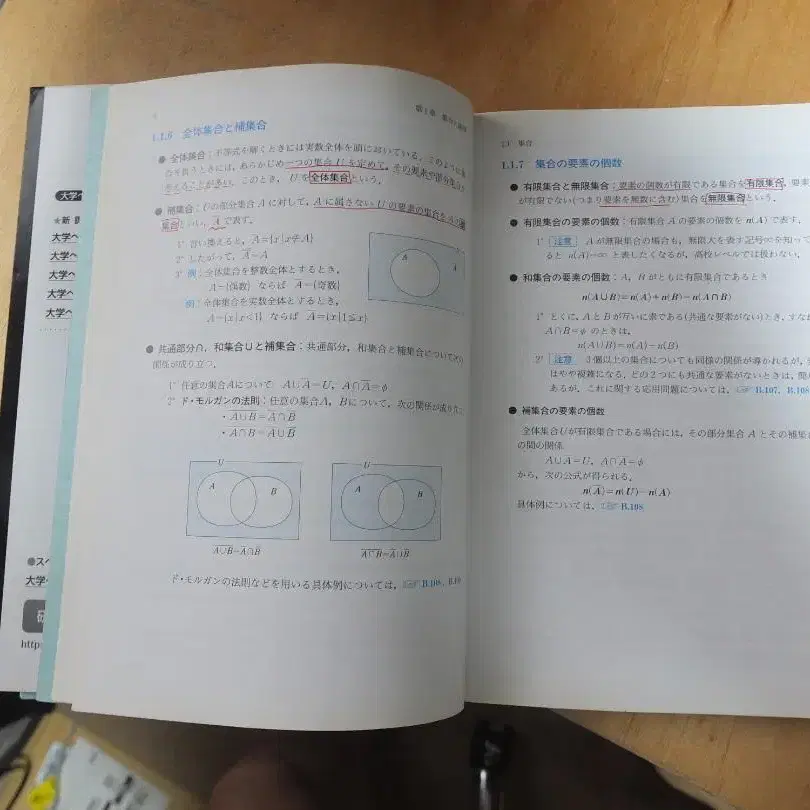 1.1.6 全体集合と補集合
● 全体集合：不等式を解くときには実数全体を頭においている．このように集
合を扱うときには，あらかじめ一つの集合 U を定めて，その要素や部分集合を
考えることが多い．このとき，U を全体集合という．
● 補集合：U の部分集合 A に対して，A に属さない U の要素の集合を A の補
集合といい，A̅ で表す．
1° 言い換えると，A̅={x|x∉A}
2° したがって，A̿=A
3° 例：全体集合を整数全体とするとき，
A={偶数} ならば A̅={奇数}
例：全体集合を実数全体とするとき，
A={x|x<1} ならば A̅={x|1≦x}
A
A̅
● 共通部分∩，和集合∪と補集合：共通部分，和集合と補集合について次の
関係が成り立つ．
1° 任意の集合Aについて A∪A̅=U，A∩A̅=φ
2° ド・モルガンの法則：任意の集合A，Bについて，次の関係が成り立つ
・A∪B=A̅∩B̅
・A∩B=A̅∪B̅
U
A
B
U
A
B
A∪B=A̅∩B̅
A∩B=A̅∪B̅
ド・モルガンの法則などを用いる具体例については，☞ B.108，B.109
1.1 集合
1.1.7 集合の要素の個数
● 有限集合と無限集合：要素の個数が有限である集合を有限集合，要素
が有限でない(つまり要素を無数に含む)集合を無限集合という．
● 有限集合の要素の個数：有限集合 A の要素の個数を n(A) で表す．
1° 注意 A が無限集合の場合も，無限大を表す記号∞を知って
ると n(A)=∞ と表したくなるが，高校レベルでは扱わない．
● 和集合の要素の個数：A，B がともに有限集合であるとき
n(A∪B)=n(A)+n(B)−n(A∩B)
1° とくに，A と B が互いに素である(共通な要素がない)とき，すなわ
A∩B=φ のときは，
n(A∪B)=n(A)+n(B)
2° 注意 3個以上の集合についても同様の関係が導かれるが，
はやや複雑になる．どの2つにも共通な要素がないときは，簡
あるが，これに関する応用問題については，☞ B.107，B.108
● 補集合の要素の個数
全体集合Uが有限集合である場合には，その部分集合 A とその補集合
の間の関係
A∪A̅=U，A∩A̅=φ
から，次の公式が得られる．
n(A̅)=n(U)−n(A)
具体例については，☞ B.108
大学へ
★新
大学へ
大学へ
大学へ
大学へ
大学へ
●スペ
大学へ
研
http